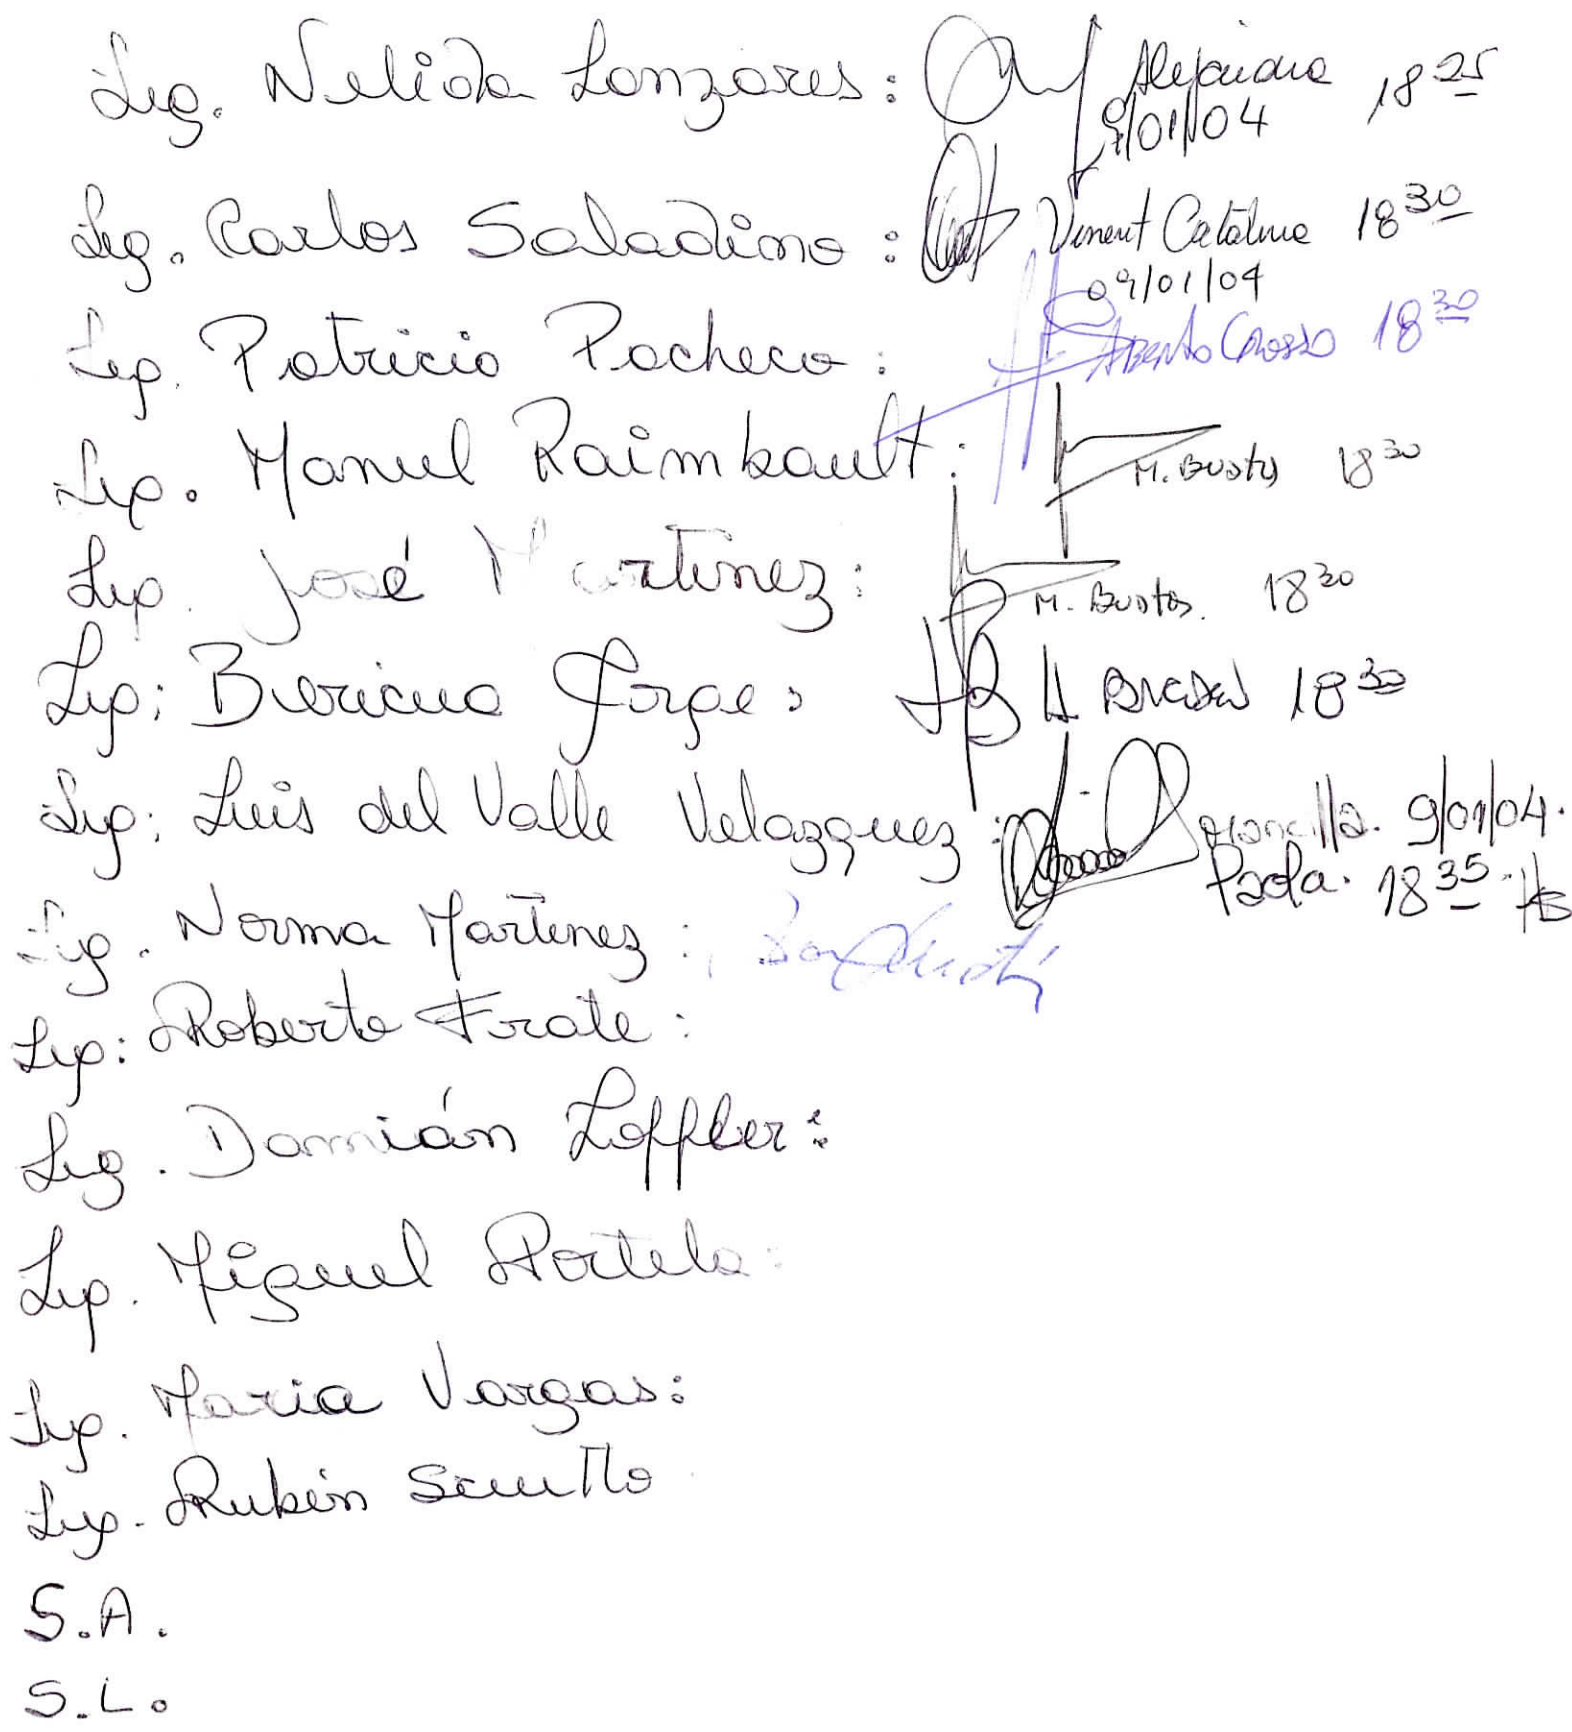 Leg. Nelida Lanzares: Alejandra 18 25
9/01/04
Leg. Carlos Saladino: Vinent Catalina 18 30
09/01/04
Leg. Patricio Pacheco: 18 30
Leg. Manuel Raimbault: M. Bustos 18 30
Leg. José Martinez: M. Bustos. 18 30
Leg: Bericua Jorge: 18 30
Leg: Luis del Valle Velazquez: Mancilla. 9/01/04.
Paola. 18 35 Hs
Leg. Norma Martinez:
Leg: Roberto Frate:
Leg. Damián Loffler:
Leg. Miguel Portela:
Leg. Maria Vargas:
Leg. Rubén Sciutto
S.A.
S.L.